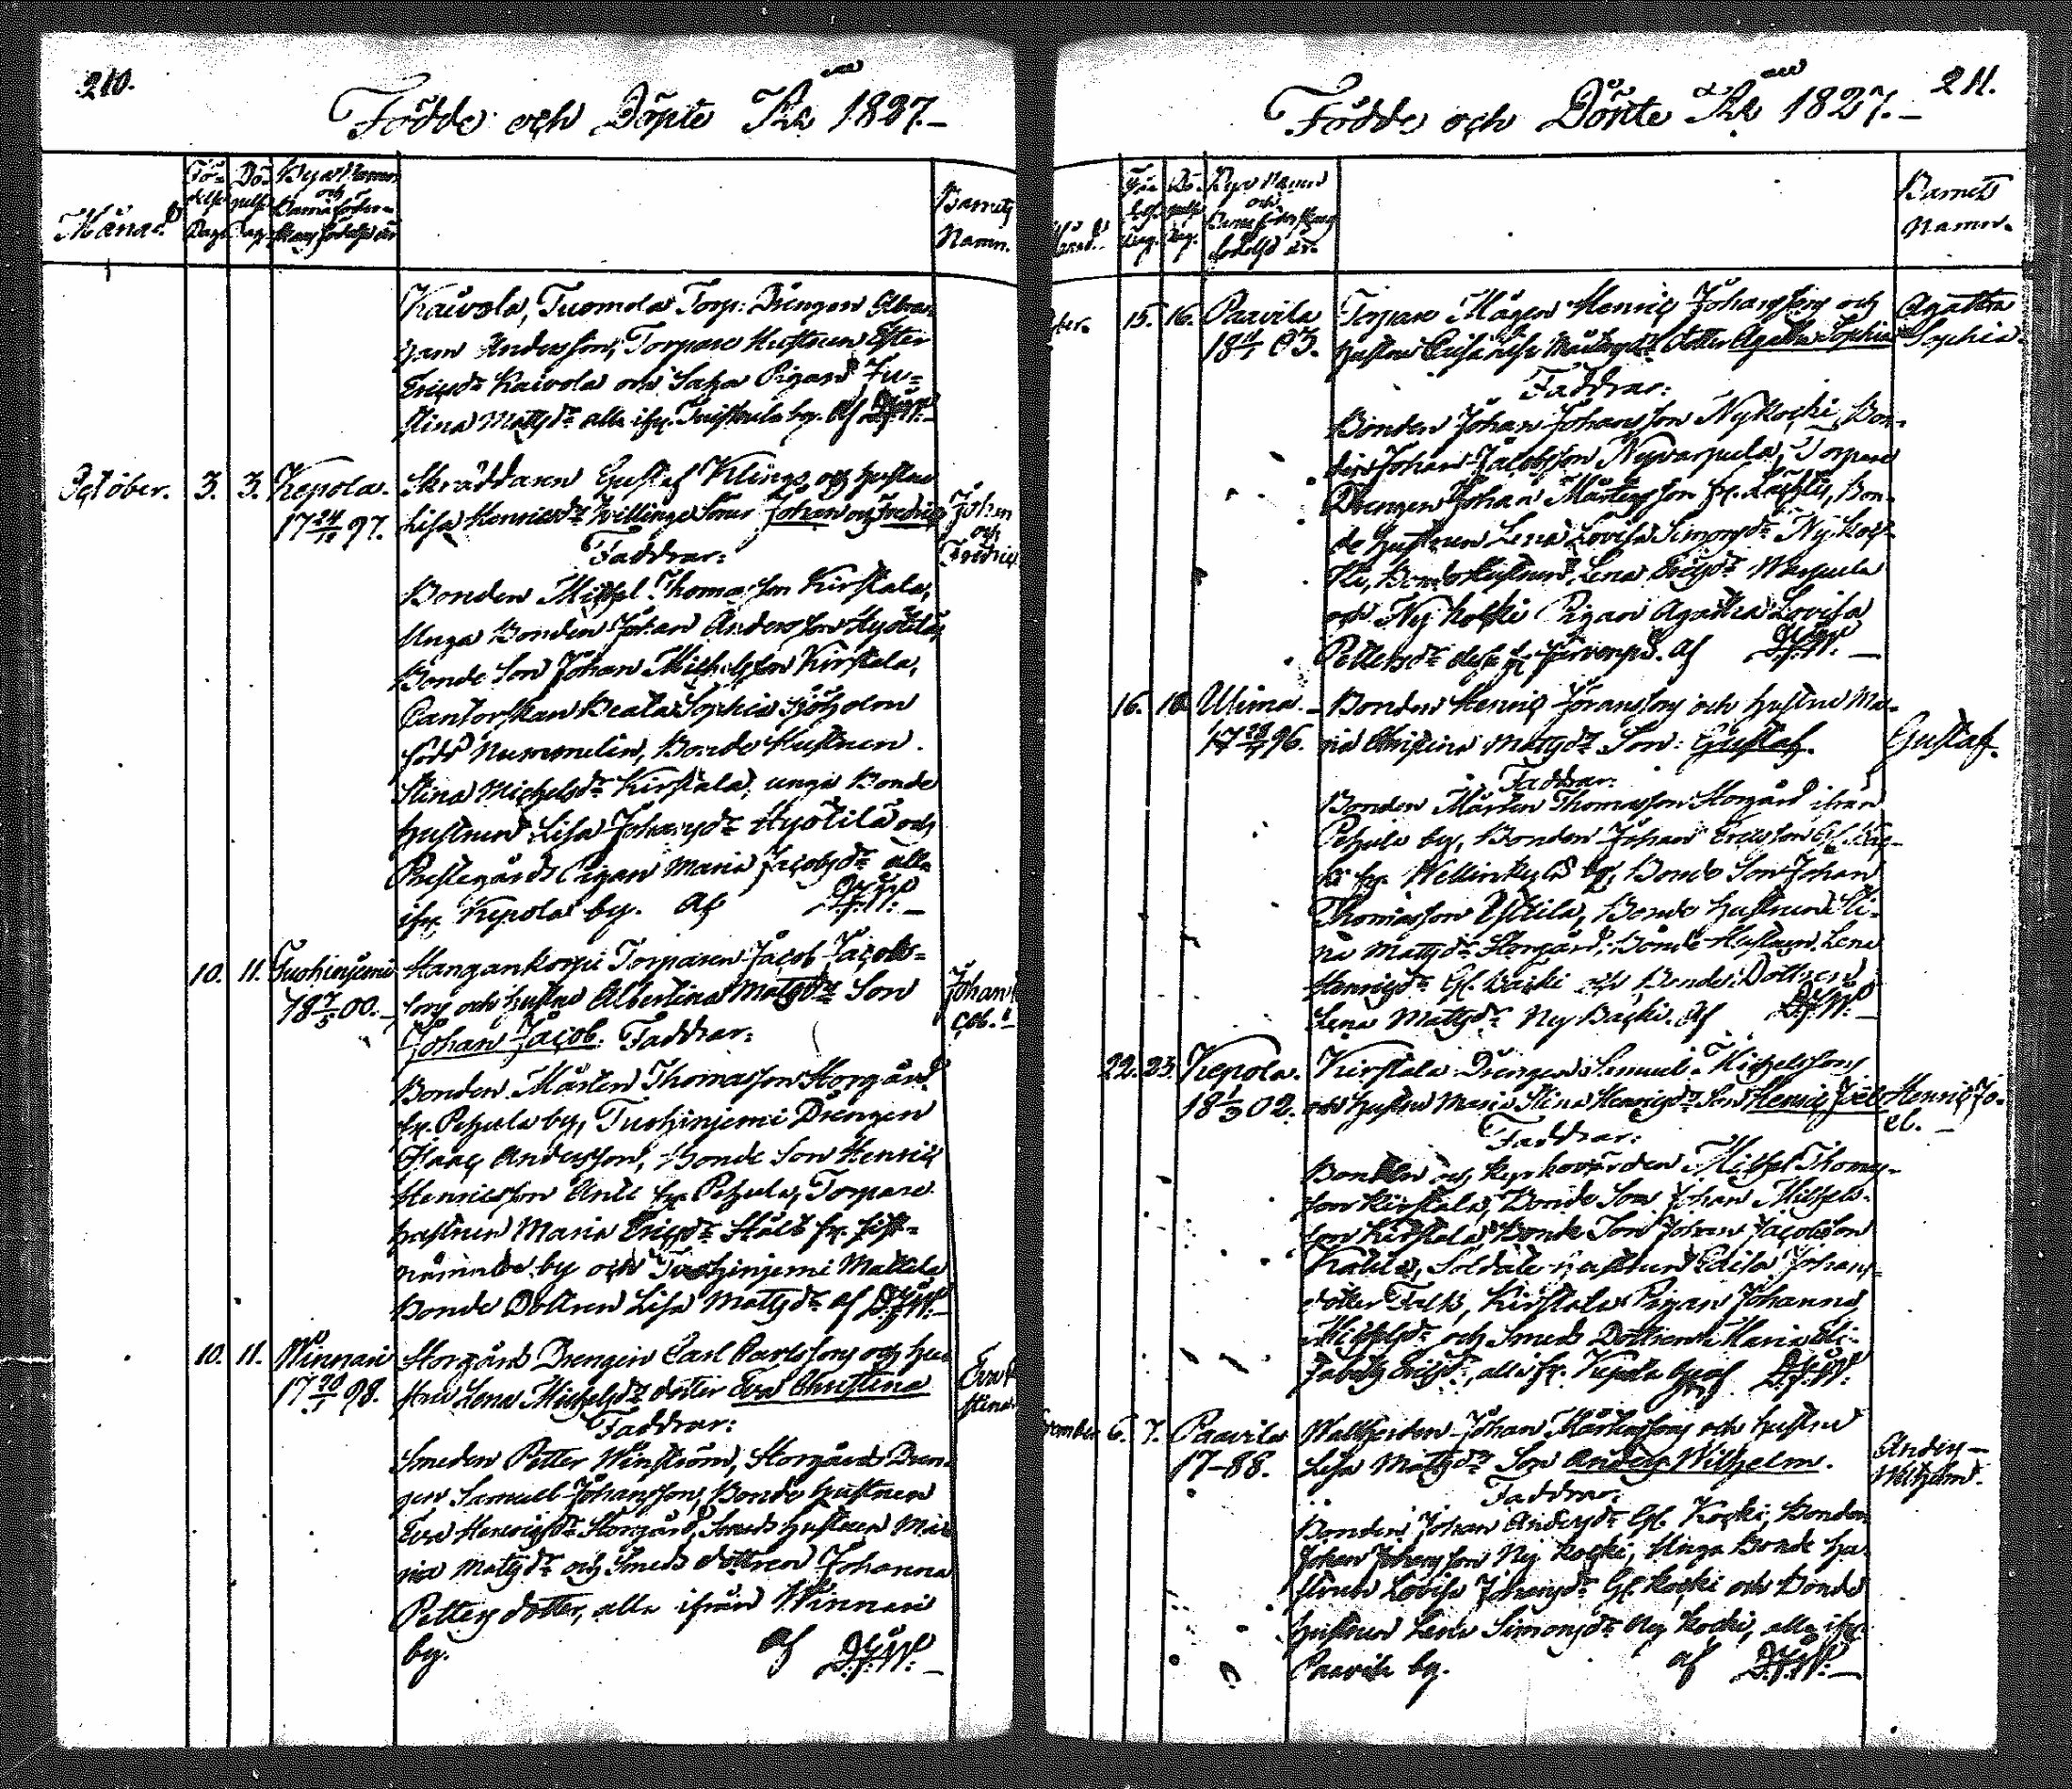 210.
Födde och Döpte År 1827.
Månad.
Födelse Dag.
Döpelse Dag.
Byns Namn
och
Barnaföder-
skans födelse år
Barnets
Namn.
Kaivola, Tuomola Torp. Drengen Abra-
ham Andersson, Torpare Hustrun Ester
Ericsdr Kaivola och Pigan Ju-
stina Mattsdr alla ifr. by. Af
October. 3. 3. Kepola. Skräddaren Gustaf Kling och hustru
17 24/10 97. Lisa Henricsdr Tvillinge Söner Johan och Fredric
Johan
och
Fredric
Faddrar:
Bonden Michel Thomasson Kirstala,
Unga Bonden Johan Andersson Hyötilä,
Bonde Son Johan Michelsson Kirstala,
Cantorskan Beata Sophia Sjöholm
född Nummelin, Bonde Hustrun
Stina Michelsdr Kirstala, unga Bonde
hustrun Lisa Johansdr Hyötilä och
Prestegårds Pigan Maria Jacobsdr alla
ifr. Kepola by. Af
10. 11. Tuohinjemi Hangankorpi Torparen Jacob Jacobs-
18 7/5 00. son och hustru Albertina Mattsdr Son
Johan Jacob. Faddrar:
Johan
cob.
Bonden Mårten Thomasson Storgård
fr. Pehula by, Tuohinjemi Drengen
Isaac Andersson, Bonde Son Henric
Henricsson Anti fr. Pehula, Torpare
hustrun Maria Ericsdr Ståls fr. sist-
nämnde by och Tuohinjemi Mattila
Bonde Dottren Lisa Mattsdr af
10. 11. Winnari Storgårds Drengen Carl Carlsson och hu-
17 98. stru Lena Michelsdr dotter Eva Christina
Eva
stina
Faddrar:
Smeden Petter Winström, Storgårds Dren-
gen Samuel Johansson, Bonde hustrun
Eva Henricsdr Storgård, Smeds hustrun Ma-
ria Mattsdr och Smeds dottren Johanna
Petters dotter, alla ifrån Winnari
by. af
211.
Födde och Döpte År 1827.
Byns Namn
och
födelse år
Barnets
Namn.
15. 16. Paavila Torpare Mågen Henric Johansson och
18 03. hustru Mårtensdr dotter Agatha Sophia
Agatha
Sophia.
Faddrar:
Bonden Johan Johansson Nykocki, Bon-
den Johan Jacobsson Nyvarpula, Torpare
Drengen Johan Mårtensson fr. Bon-
de hustrun Lena Lovisa Simonsdr Ny Koc-
ki, Bonde hustrun Lena Ericsdr Warpula
och Ny Kocki Pigan Agatha Lovisa
Pettersdr Af
16. 18. Uhima. Bonden Henric Göransson och hustru Ma-
17 96. ria Christina Mattsdr Son: Gustaf.
Gustaf.
Faddrar:
Bonden Mårten Thomasson Storgård ifrån
Pehula by, Bonden Johan Ericsson Gl. Bac-
ki fr. Wellinkylä by, Bonde Son Johan
Thomasson Ystilä, Bonde hustrun Sti-
na Mattsdr Storgård, Bonde Hustrun Lena
Henricsdr Gl. Backi och Bonde Dottren
Lena Mattsdr Ny Backi. Af
22. 23. Kepola. Kirstala Drengen Samuel Michelsson
18 1/3 02. och hustru Maria Stina Henricsdr Son Henric Joel
Henric Jo-
el.
Faddrar:
Bonden och Kyrkovärden Michel Thomas-
son Kirstala, Bonde Son Johan Michels-
son Kirstala, Bonde Son Johan Jacobsson
Soldate hustrun Johans-
dotter Falk, Kirstala Pigan Johanna
Michelsdr och Smeds Dottren Maria Eli-
sabeth Ericsdr, alla fr. Kepola by af
6. 7. Paavila Wallherden Johan Mårtensson och hustru
17-88. Lisa Mattsdr Son Anders Wilhelm.
Anders
Wilhelm.
Faddrar:
Bonden Johan Andersdr Gl. Kocki, Bonden
Johan Johansson Ny Kocki, Unga Bonde hu-
strun Lovisa Johansdr Gl. Kocki och Bonde
hustrun Lena Simonsdr Ny Kocki, alla ifr.
Paavila by. af